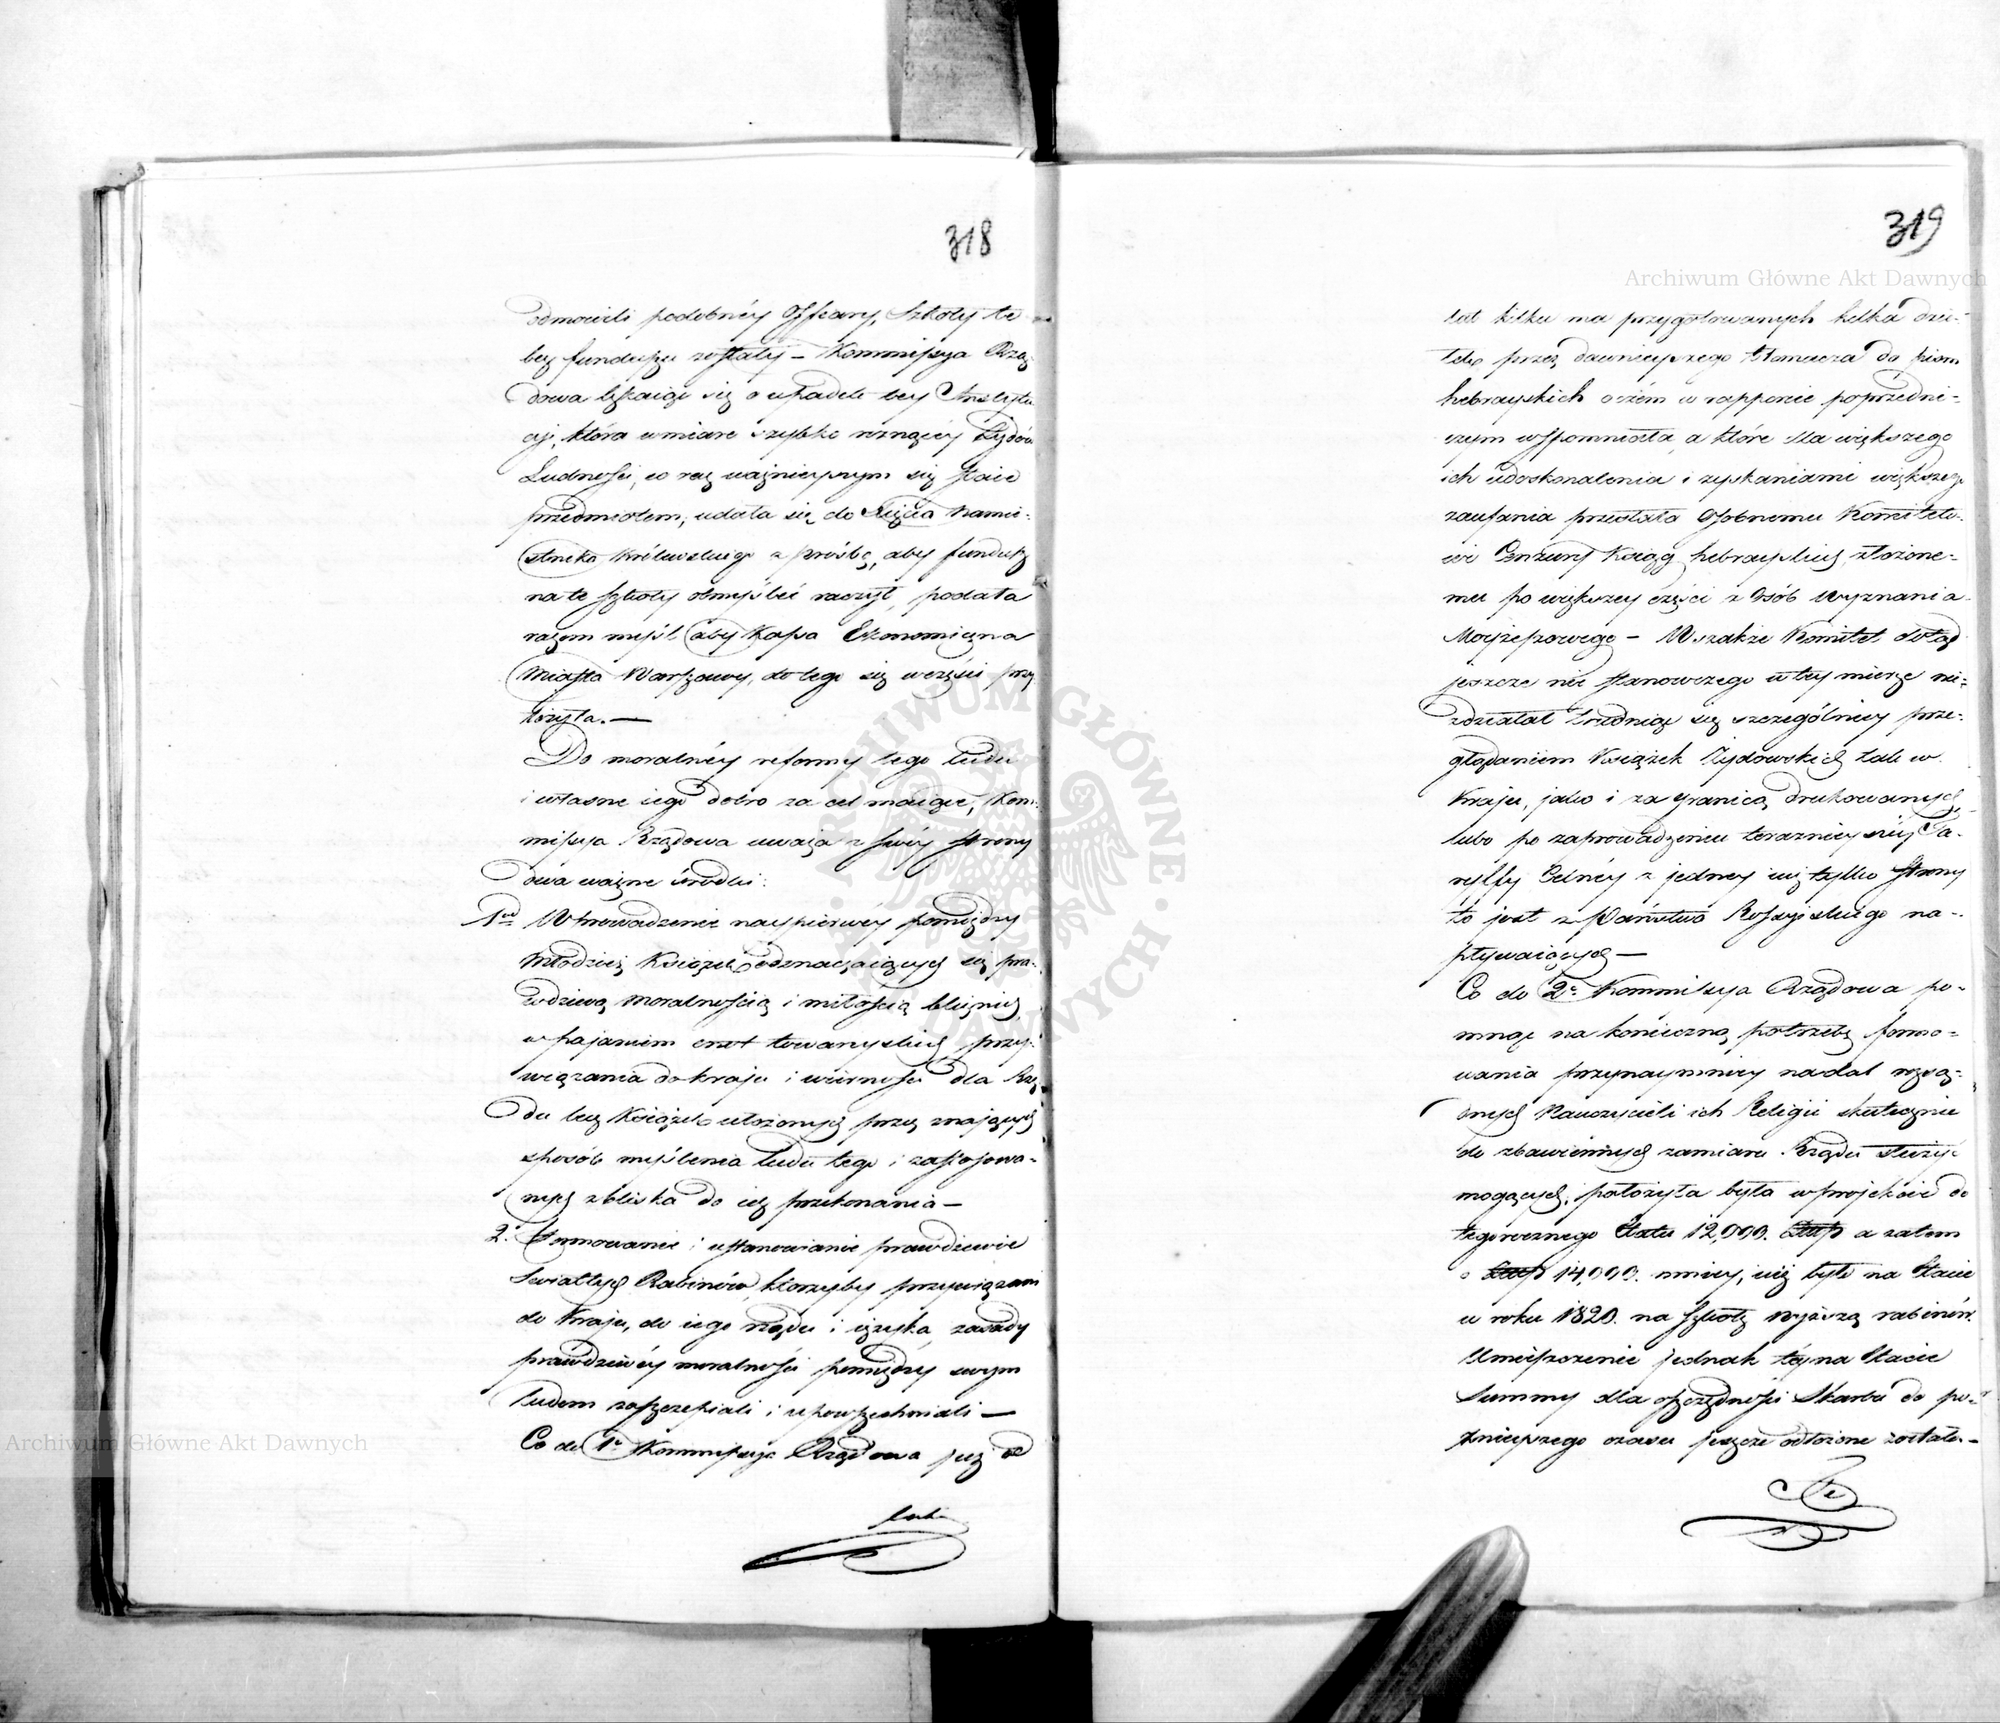 318
odmówili podobnéy Offiary, Szkoły te
bez funduszu zostały – Kommissya Rzą
dowa lękaiąc się o upadek tey Instytu
cyi, która w miarę szybko rosnącey Żydów
Ludności, co raz ważnieyszym się staie
przedmiotem, udała się do Xięcia Namie-
stnika Królewskiego z prośbą, aby fundusz
na te szkoły obmyślić raczył, podała
razem myśl aby Kassa Ekonomiczna
Miasta Warszawy, do tego się w części przy
łożyła. —
Do moralnéy reformy tego ludu
i własne iego dobro za cel maiące, Kom-
missya Rządowa uważa z swéy strony
dwa ważne środki:
1od Wprowadzenie naypierwéy pomiędzy
młodzież Książek odznaczaiących się pra-
wdziwą moralnością i miłością bliźnich,
wpajaniem cnot towarzyskich, przy-
wiązania do kraju i wierności dla Rzą
du tuż Książek ułożonych przez znających
sposób myślenia ludu tego i zastosowa-
nych zbliska do ich przekonania —
2o Formowanie i ustanowianie prawdziwie
Swiatłych Rabinów, którzyby przywiązani
do Kraju, do iego rządu i ięzyka, zasady
prawdziwéy moralności pomiędzy swym
ludem zaszczepiali i upowszechniali —
Co do 1o Kommissya Rządowa już od
319
Archiwum Główne Akt Dawnych
lat kilku ma przygotowanych kilka dzie-
łek przez dawnieyszego tłomacza do pism
hebrayskich o czém w rapporcie poprzedni-
czym wspomniała, a które dla większego
ich udoskonalenia i zyskaniami większego
zaufania przesłała Osobnemu Komiteto-
wi Cenzury Ksiąg hebrayskich, złożone-
mu po większey części z Osób Wyznania
Moyżeszowego – Wszakże Komitet dotąd
jeszcze nic stanowczego w tey mierze nie-
zdziałał trudniąc się szczególniey prze-
glądaniem Książek Żydowskich tak w
Kraju, jako i za granicą drukowanych,
lubo po zaprowadzeniu teraznieyszéy Ta-
ryffy Celnéy z jedney już tylko strony
to jest z Państwa Rossyiskiego na-
pływaiących —
Co do 2o Kommissya Rządowa po-
mnąc na konieczną potrzebę formo-
wania przynaymniey nadal rozsą-
dnych Nauczycieli ich Religii skutecznie
do zbawiennych zamiaru Rządu służyć
mogących, położyła była w projekcie do
tegorocznego Etatu 12,000. a zatem
o 14,000. mniey, niż było na Etacie
w roku 1820. na szkołę wyższą rabinów.
Umieszczenie jednak téy na Etacie
Summy dla oszczędności Skarbu do po-
znieyszego czasu jeszcze odłożone zostało. —
ARCHIWUM GŁÓWNE AKT DAWNYCH
Archiwum Główne Akt Dawnych